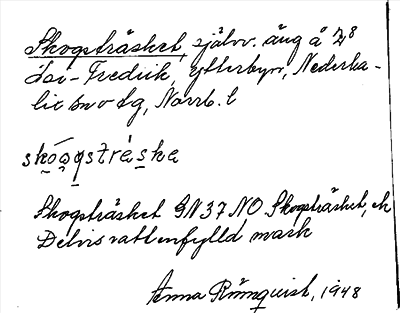 Skogsträsket, självv. äng å 2⁸
Isi-Fredrik, Ytterbyn, Nederka-
lix sn o tg, Norrb. l
skógstrȧska
Skogsträsket GN37NO Skogsträsket,
Delvis vattenfylld mark
Anna Römquist, 1948